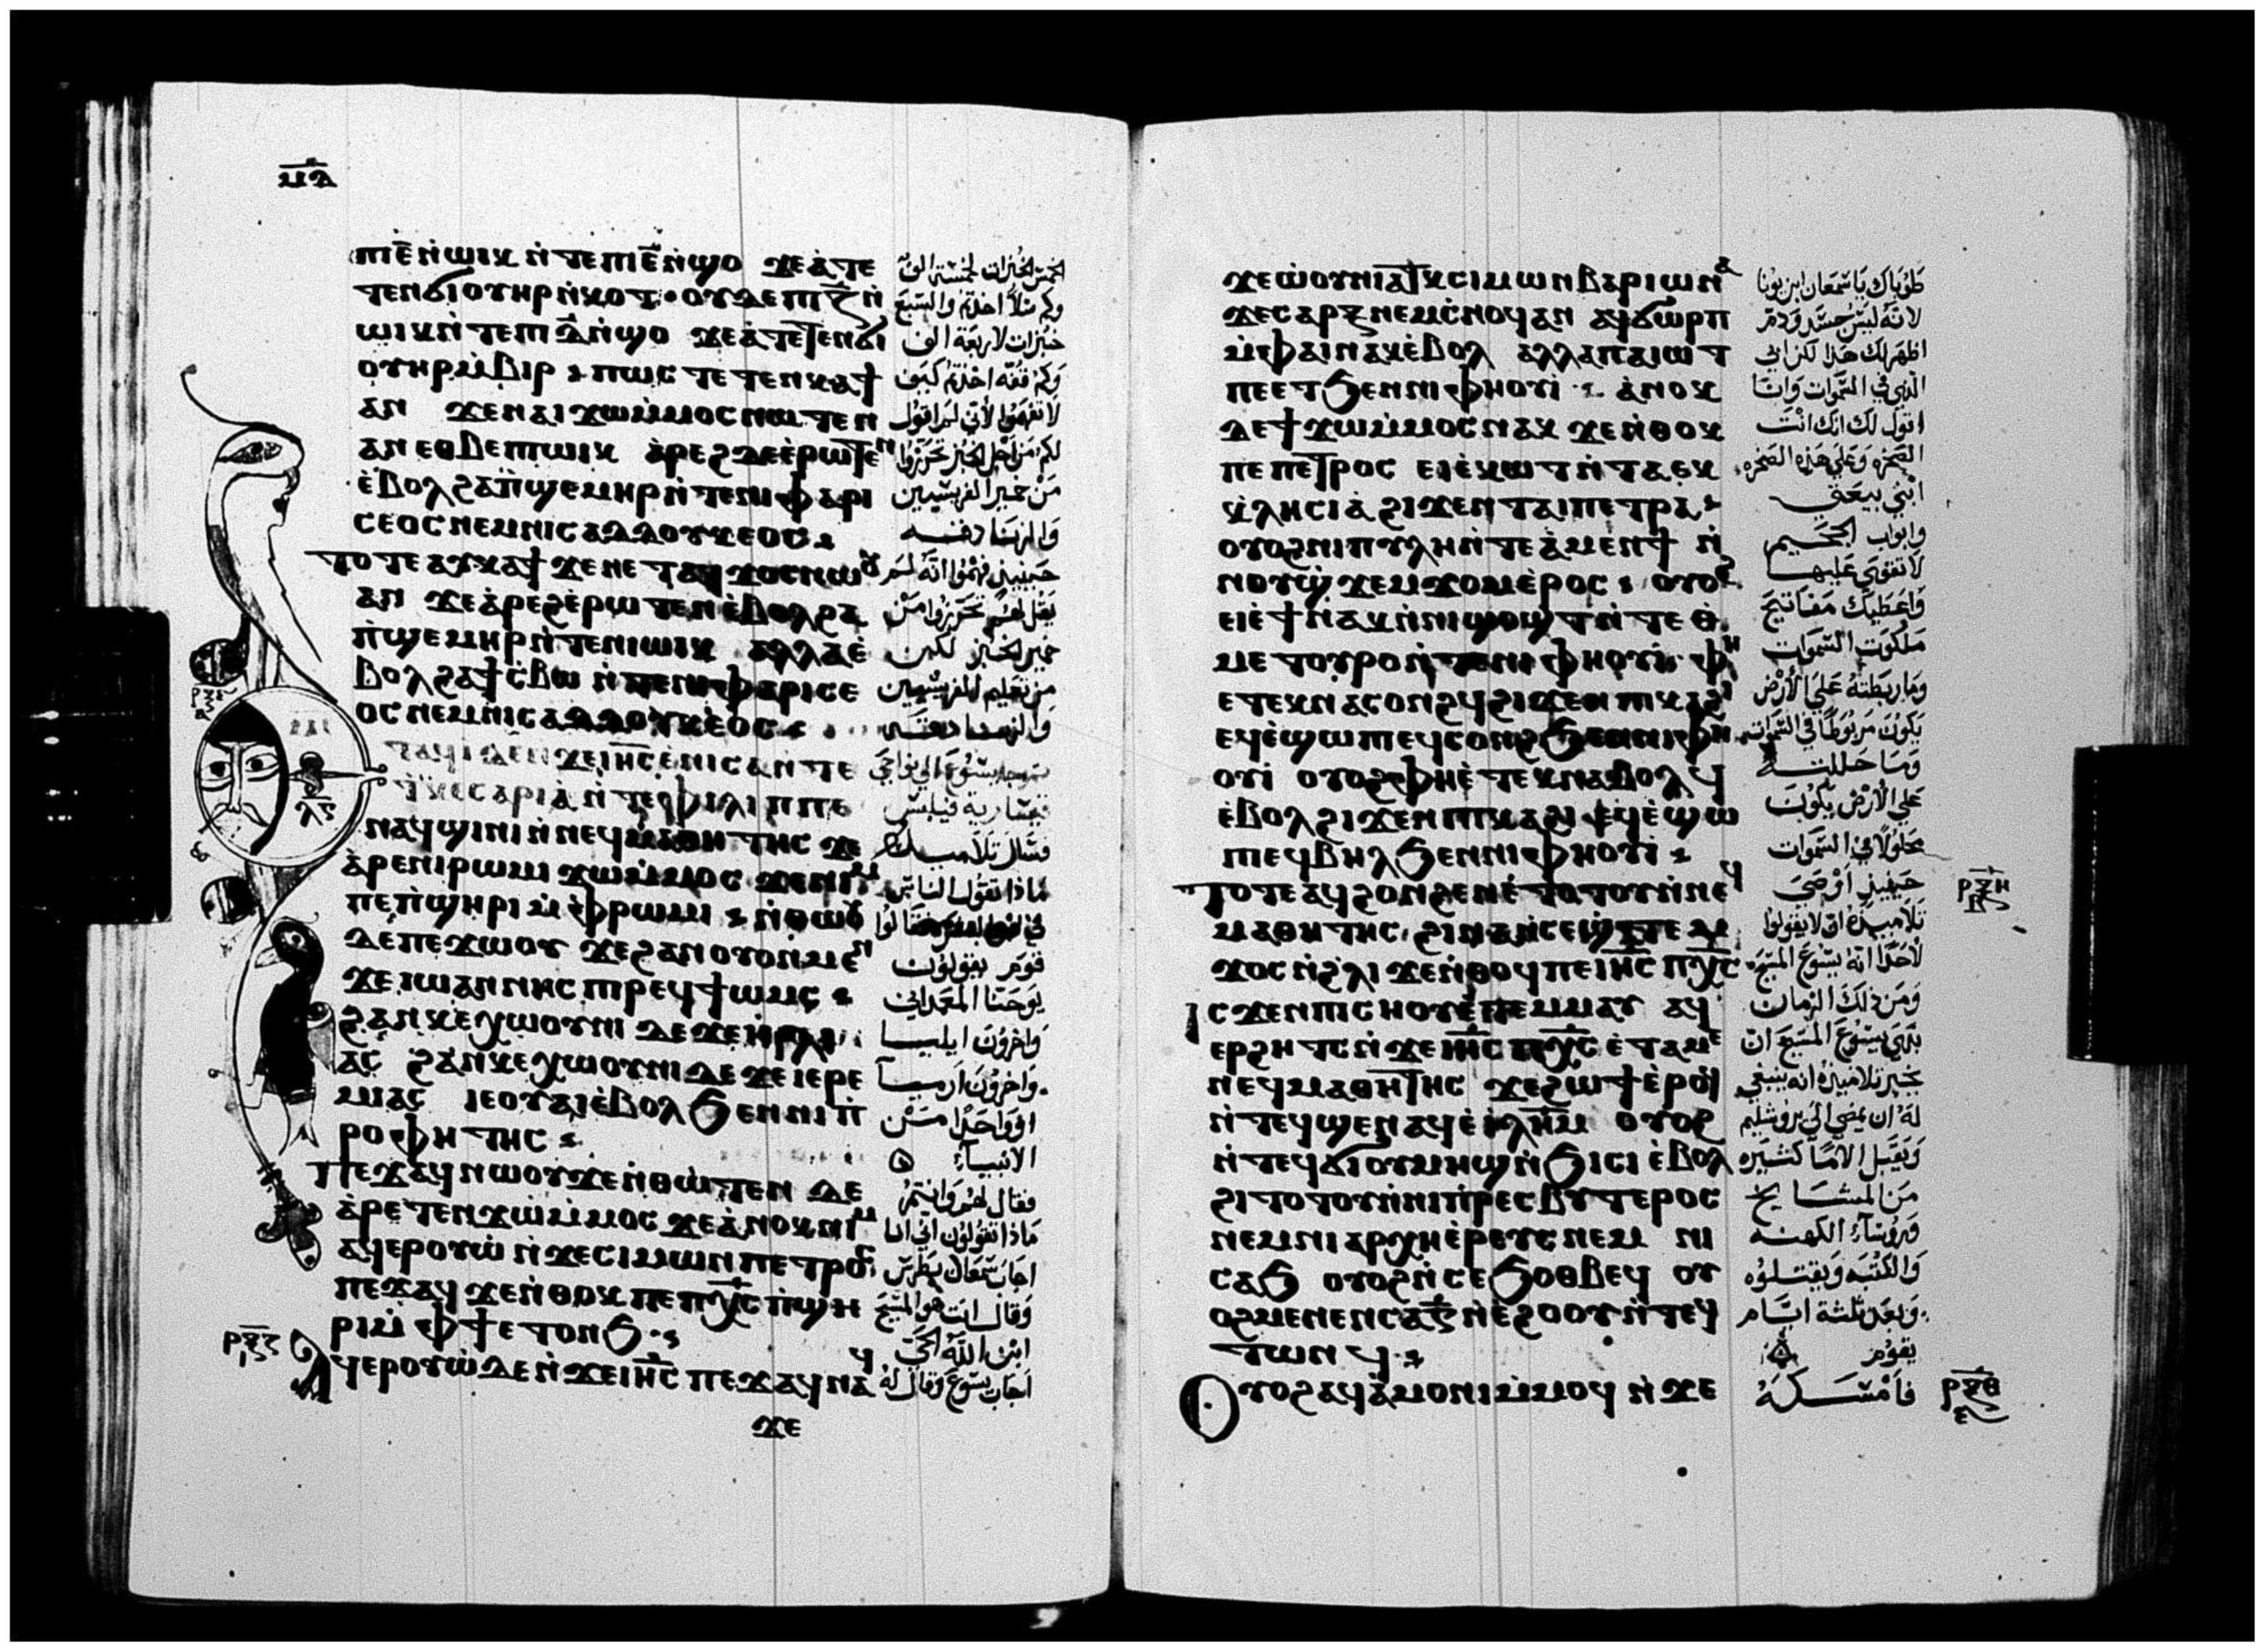 ⲙⲇ
ⲡⲓⲉ̅ⲛ̀ⲱⲓⲕ ⲛ̀ⲧⲉⲡⲓⲉ̅ⲛ̀ϣⲟ ϫⲉⲁ̀ⲧⲉ
ⲧⲉⲛϭⲓⲟⲩⲏⲣⲛ̀ⲕⲟⲧ · ⲟⲩⲇⲉⲡⲓⲍ̅ⲛ̀
ⲱⲓⲕⲛ̀ⲧⲉⲡⲓⲇ̅ⲛ̀ϣⲟ ϫⲉⲁ̀ⲧⲉⲧⲉⲛϭⲓ
ⲟⲩⲏⲣⲙ̀ⲃⲓⲣ ⲡⲱⲥ ⲧⲉⲧⲉⲛⲕⲁϯ
ⲁⲛ ϫⲉⲛⲁⲓϫⲱⲙ̀ⲙⲟⲥⲛⲱⲧⲉⲛ
ⲁⲛⲉⲑⲃⲉⲡⲓⲱⲓⲕ ⲁ̀ⲣⲉϩⲇⲉⲉ̀ⲣⲱⲧⲉⲛ
ⲉ̀ⲃⲟⲗϩⲁⲡ̀ϣⲉⲙⲏⲣⲛ̀ⲧⲉⲛⲓⲫⲁⲣⲓ
ⲥⲉⲟⲥⲛⲉⲙⲛⲓⲥⲁⲇⲇⲟⲩⲕⲉⲟⲥ
ⲧⲟⲧⲉⲁⲩⲕⲁϯ ϫⲉⲛⲉⲧⲁϥϫⲟⲥⲛⲱⲟⲩ
ⲁⲛ ϫⲉⲁ̀ⲣⲉϩⲉ̀ⲣⲱⲧⲉⲛⲉ̀ⲃⲟⲗϩⲁ
ⲡ̀ϣⲉⲙⲏⲣⲛ̀ⲧⲉⲛⲓⲱⲓⲕ ⲁⲗⲗⲁⲉ̀
ⲃⲟⲗϩⲁϯⲥ̀ⲃⲱ ⲛ̀ⲧⲉⲛⲓⲫⲁⲣⲓⲥⲉ
ⲟⲥⲛⲉⲙⲛⲓⲥⲁⲇⲇⲟⲩⲕⲉⲟⲥ
ⲧⲁϥⲓ̀ ⲇⲉⲛ̀ϫⲉⲓⲏ̅ⲥ̅ⲉ̀ⲛⲓⲥⲁⲛ̀ⲧⲉ
ϯⲕⲉⲥⲁⲣⲓⲁ̀ ⲛ̀ⲧⲉⲫⲓⲗⲓⲡⲡⲉ
ⲛⲁϥϣⲓⲛⲓⲛ̀ⲛⲉϥⲙⲁⲑⲏⲧⲏⲥ ϫⲉ
ⲁ̀ⲣⲉⲛⲓⲣⲱⲙⲓ ϫⲱⲙ̀ⲙⲟⲥ ϫⲉⲛⲓⲙ
ⲡⲉⲡ̀ϣⲏⲣⲓ ⲙ̀ⲫⲣⲱⲙⲓ ⲛ̀ⲑⲱⲟⲩ
ⲇⲉⲡⲉϫⲱⲟⲩ ϫⲉϩⲁⲛⲟⲩⲟⲛⲙⲉⲛ
ϫⲉⲓⲱⲁⲛⲛⲏⲥ ⲡⲓⲣⲉϥϯⲱⲙⲥ
ϩⲁⲛⲕⲉⲭⲱⲟⲩⲛⲓ ⲇⲉϫⲉⲏⲗⲓ
ⲁⲥ ϩⲁⲛⲕⲉⲭⲱⲟⲩⲛⲓⲇⲉϫⲉⲓⲉⲣⲉ
ⲙⲓⲁⲥ ⲓⲉⲟⲩⲁⲓⲉ̀ⲃⲟⲗϧⲉⲛⲛⲓⲡ̀
ⲣⲟⲫⲏⲧⲏⲥ
ⲡⲉϫⲁϥⲛⲱⲟⲩϫⲉⲛ̀ⲑⲱⲧⲉⲛ ⲇⲉ
ⲁ̀ⲣⲉⲧⲉⲛϫⲱⲙ̀ⲙⲟⲥ ϫⲉⲁ̀ⲛⲟⲕⲛⲓⲙ
ⲁϥⲉⲣⲟⲩⲱ̀ ⲛ̀ϫⲉⲥⲓⲙⲱⲛⲡⲉⲧⲣⲟⲥ
ⲡⲉϫⲁϥ ϫⲉⲛ̀ⲑⲟⲕⲡⲉⲡⲭ̅ⲥ̅ⲡ̀ϣⲏ
ⲣⲓⲙ̀ⲫϯⲉⲧⲟⲛϧ
ⲁϥⲉⲣⲟⲩⲱ̀ⲇⲉⲛ̀ϫⲉⲓⲏ̅ⲥ̅ ⲡⲉϫⲁϥⲛⲁϥ
ϫⲉ
ⲣⲝⲋ
ⲗⲋ
ⲣⲝⲍ
ⲓ
الخمس الخبزات لخمسة الف
وكم سلاً اخذتم والسبع
خبزات لاربعة الف
وكم قفه اخذتم كيف
لا تفهموا لاني لم اقول
لكم من اجل الخبز تحرزوا
من خمير الفريسيين
والزنادقه
حينيذ فهموا انه لم
يقل لهم تحرزوا من
خمير الخبز لكن
من تعليم الفريسيين
والزنادقه
يسوع الي نواحي
قيسارية فيلبس
فسال تلاميذه
ماذا تقول الناس
قوم يقولون
يوحنا المعمداني
واخرون ايليا
واخرون ارميا
او واحدًا من
الانبياء
فقال لهم وانتم
ماذا تقولون اني انا
اجاب سمعان بطرس
وقال انت هو المسيح
ابن الله الحي
اجاب يسوع وقال له
ϫⲉⲱ̀ⲟⲩⲛⲓⲁⲧⲕⲥⲓⲙⲱⲛⲃⲁⲣⲓⲱⲛⲁ
ϫⲉⲥⲁⲣⲝⲛⲉⲙⲥ̀ⲛⲟϥⲁⲛ ⲁϥϭⲱⲣⲡ
ⲙ̀ⲫⲁⲓⲛⲁⲕⲉ̀ⲃⲟⲗ ⲁⲗⲗⲁⲡⲁⲓⲱⲧ
ⲡⲉⲉⲧϧⲉⲛⲛⲓⲫⲏⲟⲩⲓ̀ ⲁ̀ⲛⲟⲕ
ⲇⲉϯϫⲱⲙ̀ⲙⲟⲥⲛⲁⲕ ϫⲉⲛ̀ⲑⲟⲕ
ⲡⲉⲡⲉⲧⲣⲟⲥ ⲉⲓⲉ̀ⲕⲱⲧⲛ̀ⲧⲁⲉⲕ
ⲕ̀ⲗⲏⲥⲓⲁ̀ ϩⲓϫⲉⲛⲧⲁⲓⲡⲉⲧⲣⲁ
ⲟⲩⲟϩⲛⲓⲡⲩⲗⲏⲛ̀ⲧⲉⲁ̀ⲙⲉⲛϯ ⲛ̀
ⲛⲟⲩϣ̀ϫⲉⲙϫⲟⲙⲉ̀ⲣⲟⲥ ⲟⲩⲟϩ
ⲉⲓⲉ̀ϯⲛⲁⲕⲛ̀ⲛⲓϣⲟϣⲧⲛ̀ⲧⲉⲑ
ⲙⲉⲧⲟⲩⲣⲟⲛ̀ⲧⲉⲛⲓⲫⲏⲟⲩⲓ̀ ⲫⲏ
ⲉⲧⲉⲕⲛⲁⲥⲟⲛϩϥϩⲓϫⲉⲛⲡⲓⲕⲁϩⲓ
ⲉϥⲉ̀ϣⲱⲡⲓⲉϥⲥⲟⲛϩϧⲉⲛⲛⲓⲫⲏ
ⲟⲩⲓ̀ ⲟⲩⲟϩⲫⲏⲉ̀ⲧⲉⲕⲛⲁⲃⲟⲗϥ
ⲉ̀ⲃⲟⲗϩⲓϫⲉⲛⲡⲓⲕⲁϩⲓ ⲉϥⲉ̀ϣⲱ
ⲡⲓⲉϥⲃⲏⲗϧⲉⲛⲛⲓⲫⲏⲟⲩⲓ̀
ⲧⲟⲧⲉⲁϥϩⲟⲛϩⲉⲛⲉ̀ⲧⲟⲧⲟⲩⲛ̀ⲛⲉϥ
ⲙⲁⲑⲏⲧⲏⲥ ϩⲓⲛⲁⲛ̀ⲥⲉϣ̀ⲧⲉⲙ
ϫⲟⲥⲛ̀ϩ̀ⲗⲓ ϫⲉⲛ̀ⲑⲟϥⲡⲉⲓⲏ̅ⲥ̅ ⲡⲭ̅ⲥ̅
ⲓⲥϫⲉⲛⲡⲓⲥⲏⲟⲩⲉ̀ⲧⲉⲙⲙⲁⲩ ⲁϥ
ⲉⲣϩⲏⲧⲥⲛ̀ϫⲉⲓⲏ̅ⲥ̅ ⲡⲭ̅ⲥ̅ⲉ̀ⲧⲁⲙⲉ
ⲛⲉϥⲙⲁⲑⲏⲧⲏⲥ ϫⲉϩⲱϯⲉ̀ⲣⲟϥ
ⲛ̀ⲧⲉϥϣⲉⲛⲁϥⲉ̀ⲓⲗ̅ⲏ̅ⲙ̅ ⲟⲩⲟϩ
ⲛ̀ⲧⲉϥϭⲓⲟⲩⲙⲏϣⲛ̀ϧⲓⲥⲓ ⲉ̀ⲃⲟⲗ
ϩⲓⲧⲟⲧⲟⲩⲛ̀ⲛⲓⲡ̀ⲣⲉⲥⲃⲩⲧⲉⲣⲟⲥ
ⲛⲉⲙⲛⲓⲁⲣⲭⲏⲉ̀ⲣⲉⲩⲥⲛⲉⲙ ⲛⲓ
ⲥⲁϧ ⲟⲩⲟϩⲛ̀ⲥⲉϧⲟⲑⲃⲉϥ ⲟⲩ
ⲟϩⲙⲉⲛⲉⲛⲥⲁⲅ̅ⲛ̀ⲉ̀ϩⲟⲟⲩⲛ̀ⲧⲉϥ
ⲧⲱⲛϥ
ⲟⲩⲟϩⲁϥⲁ̀ⲙⲟⲛⲓⲙ̀ⲙⲟϥ ⲛ̀ϫⲉ
طوباك يا سمعان ابن يونا
لانه ليس جسد ودم
اظهر لك هذا لكن ابي
الذي في السموات وانا
اقول لك انك انت
الصخره وعلي هذه الصخره
ابني بيعتي
وابواب الجحيم
لا تقوي عليها
واعطيك مفاتيح
ملكوت السموات
وما ربطته علي الارض
يكون مربوطًا في السموات
وما حللته
علي الارض يكون
محلولاً في السموات
حينيذ اوصي
تلاميذه ان لا يقولوا
لاحدًا انه يسوع المسيح
ومن ذلك الزمان
بدي يسوع المسيح ان
يخبر تلاميذه انه ينبغي
له ان يمضي الي يروشليم
ويقبل الامًا كثيره
من المشايخ
وروساء الكهنه
والكتبه ويقتلوه
وبعد ثلثة ايام
يقوم
فامسكه
ⲣⲝⲏ
ⲃ
ⲣⲝⲑ
ⲋ